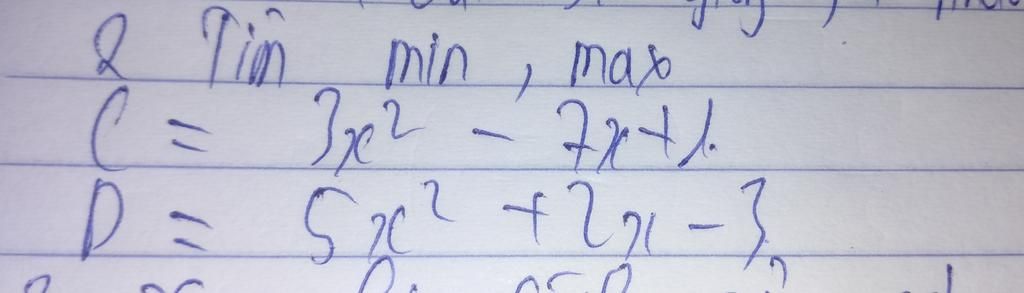 2 Tìm min, max
C = 3x² - 7x + 1.
D = 5x² + 2x - 3